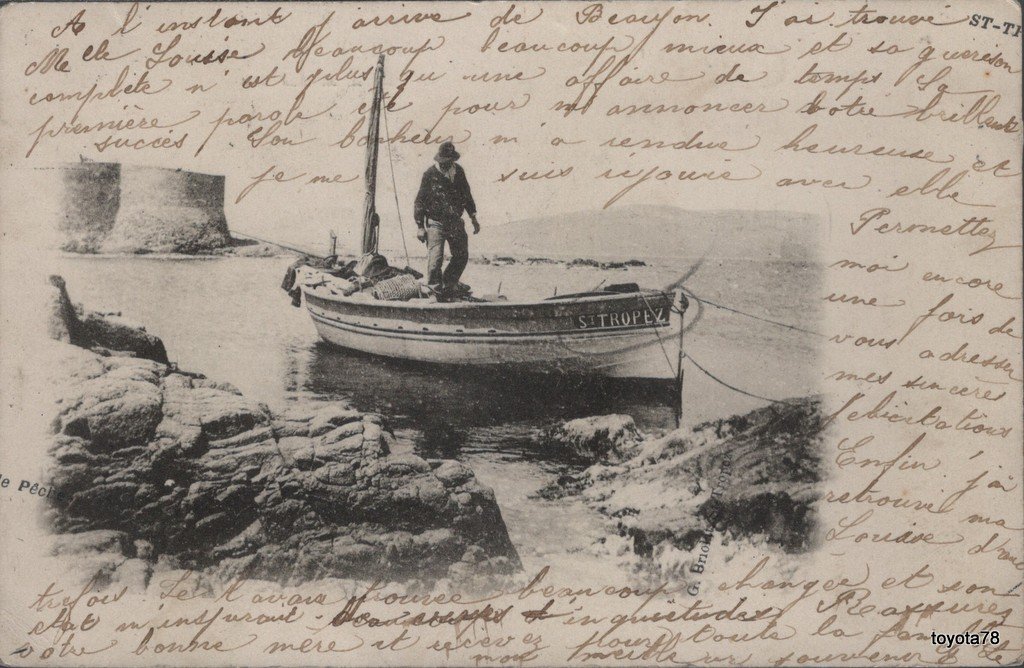 A l'instant j'arrive de Beaujon. J'ai trouvé
ST-T
Melle Louise beaucoup beaucoup mieux et sa guerison
complète n'est plus qu'une affaire de temps Sa
première parole été pour m'annoncer votre brillant
succès Son bonheur m'a rendue heureuse et
je me suis réjouie avec elle
Permettez
moi encore
une fois de
vous adresser
mes sincères
félicitations
Enfin j'ai
retrouvé ma
Louise d'au
trefois Je l'avais trouvée beaucoup changée et son
etat m'inspirait inquiétudes Rassurez
votre bonne mère et recevez pour toute la famille
mon meilleur souvenir
ST TROPEZ
de Pêche
G. Brion
toyota78